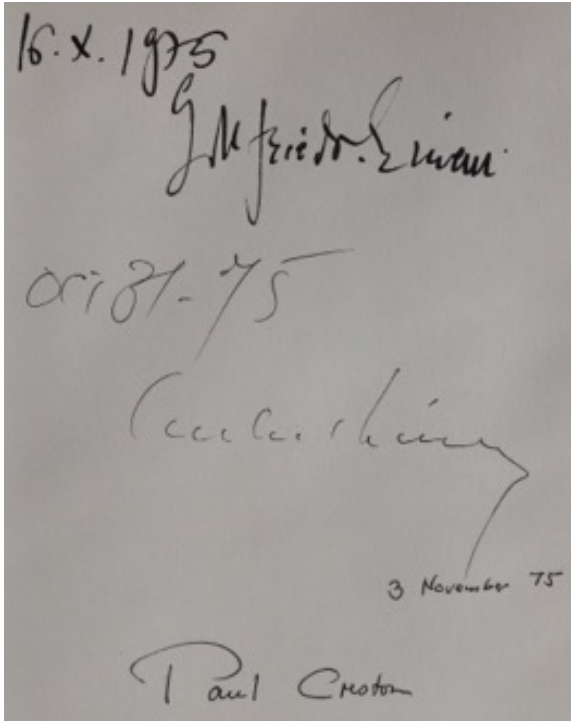 16.X.1975
Gottfried v. Einem
oct 31-75
3 November 75
Paul Creston